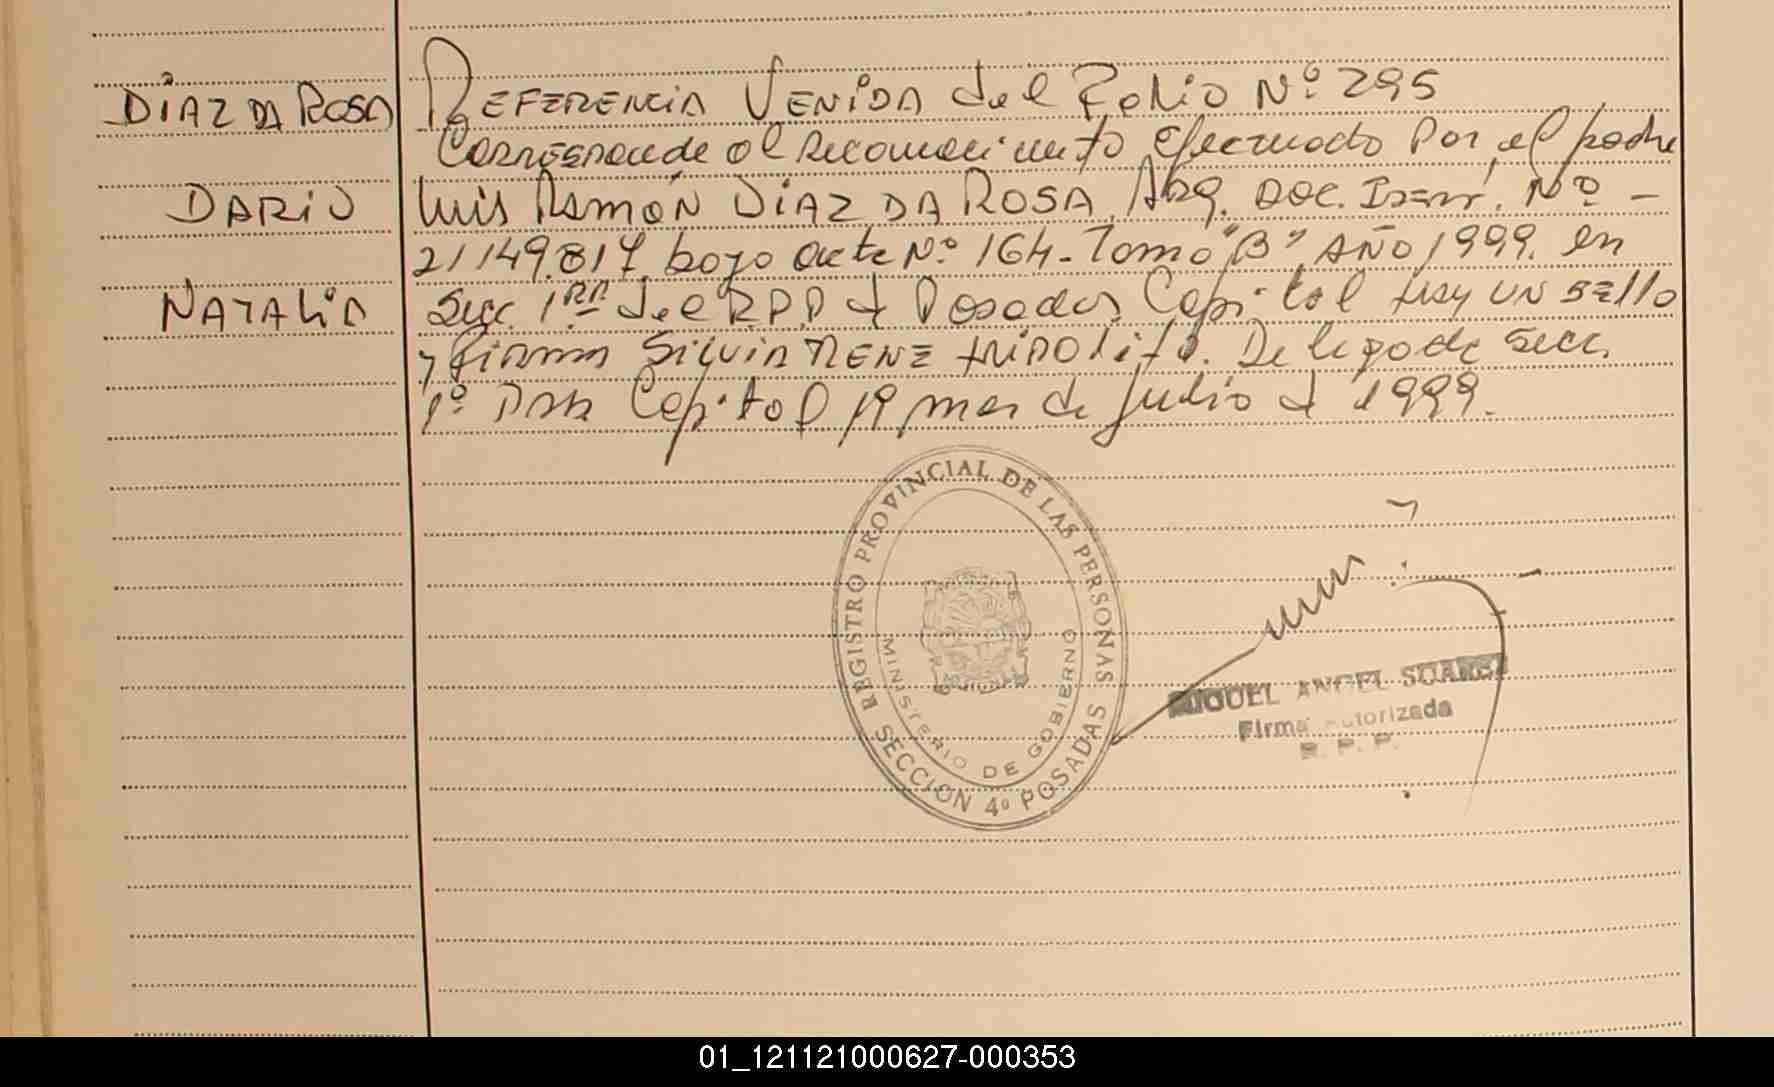 DIAZ DA ROSA
DARIO
NATALIA
REFERENCIA VENIDA del Folio Nº 295
Corresponde al reconocimiento efectuado Por el padre
Luis Ramón DIAZ DA ROSA, Arg. Doc. Ident. Nº -
21149.817 bajo acta Nº 164 - Tomo "B" AÑO 1999. en
Secc. 1ra del R.P.P d Posadas, Capital Hay UN sello
y firma Silvia RENE HIPOLITO. Delegada Secc.
1º Pdas Capital 19 mes de Julio d 1999.
REGISTRO PROVINCIAL DE LAS PERSONAS
MINISTERIO DE GOBIERNO
SECCION 4º POSADAS
MIGUEL ANGEL SUAREZ
Firma Autorizada
R. P. P.
01_121121000627-000353